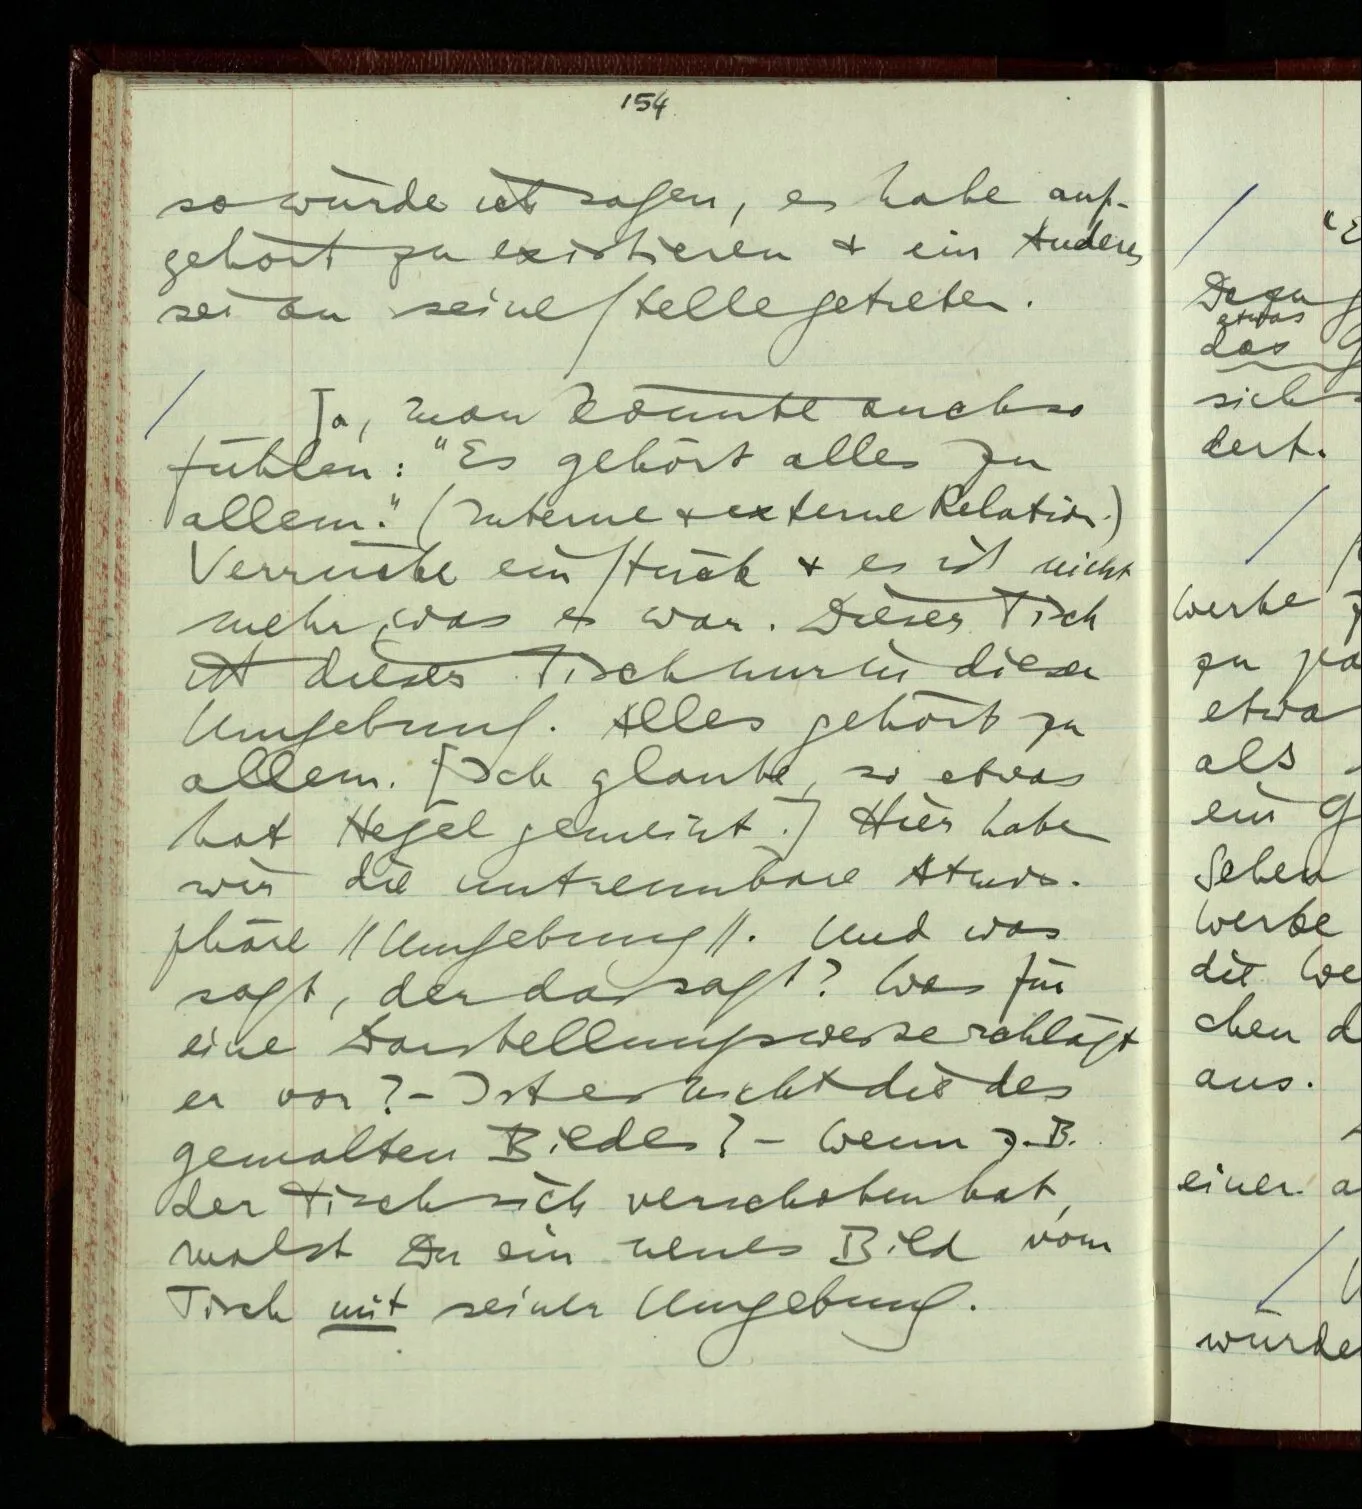 154
so würde ich sagen, es habe auf-
gehört zu existieren & ein Anderes
sei an seine Stelle getreten.
/ Ja, man könnte auch so
fühlen: "Es gehört alles zu
allem." (Interne & externe Relation.)
Verrücke ein Stück & es ist nicht
mehr, was es war. Dieser Tisch
ist dieser Tisch nur in dieser
Umgebung. Alles gehört zu
allem. [Ich glaube, so etwas
hat Hegel gemeint.] Hier habe
wir die untrennbare Atmos-
phäre //Umgebung//. Und was
sagt, der das sagt? Was für
eine Darstellungsweise schlägt
er vor? – Ist es nicht die des
gemalten Bildes? – Wenn z.B.
der Tisch sich verschoben hat,
malst Du ein neues Bild vom
Tisch mit seiner Umgebung.
/ "E
etwas
das G
sich
dert.
/
werke
zu
etwa
als
ein G
Sehen
werke
die We
chen d
aus.
einer a
/
würde